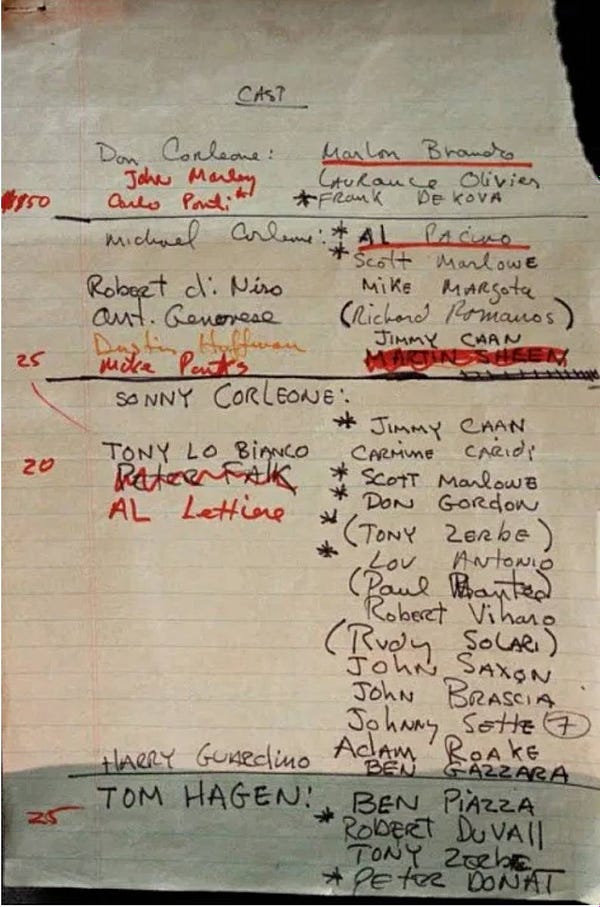 CAST
Don Corleone: Marlon Brando
John Marley Laurance Olivier
$150 Carlo Ponti * FRANK DE KOVA
Michael Corleone: * AL PACINO
* Scott Marlowe
Robert di Niro Mike Margota
Ant. Genovese (Richard Romanos)
Dustin Hoffman JIMMY CAAN
25 Mike MARTIN SHEEN
SONNY CORLEONE:
* JIMMY CAAN
TONY LO BIANCO CARMINE CARIDI
20 PETER FALK * SCOTT MARLOWE
AL Lettiere * DON GORDON
* (TONY ZERBE)
* LOU ANTONIO
(Paul)
Robert Viharo
(RUDY SOLARI)
JOHN SAXON
JOHN BRASCIA
Johnny Sette 7
Adam ROAKE
HARRY GUARDINO BEN GAZZARA
TOM HAGEN: BEN PIAZZA
25 * ROBERT DUVALL
TONY ZERBE
* PETER DONAT